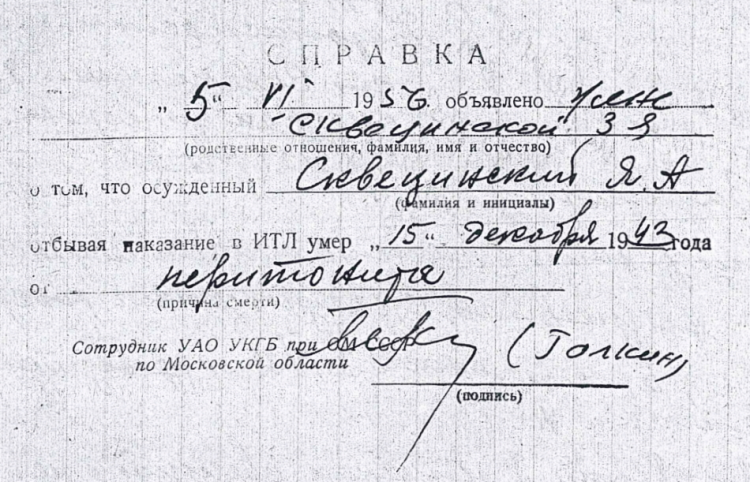 СПРАВКА
„ 5 “ VI 1956. объявлено
Сквецинской З Я
(родственные отношения, фамилия, имя и отчество)
о том, что осужденный Сквецинский Я. А
(фамилия и инициалы)
отбывая наказание в ИТЛ умер „ 15 “ декабря 1943 года
от перитонита
(причина смерти)
Сотрудник УАО УКГБ при СМ СССР
по Московской области (Голкин)
(подпись)